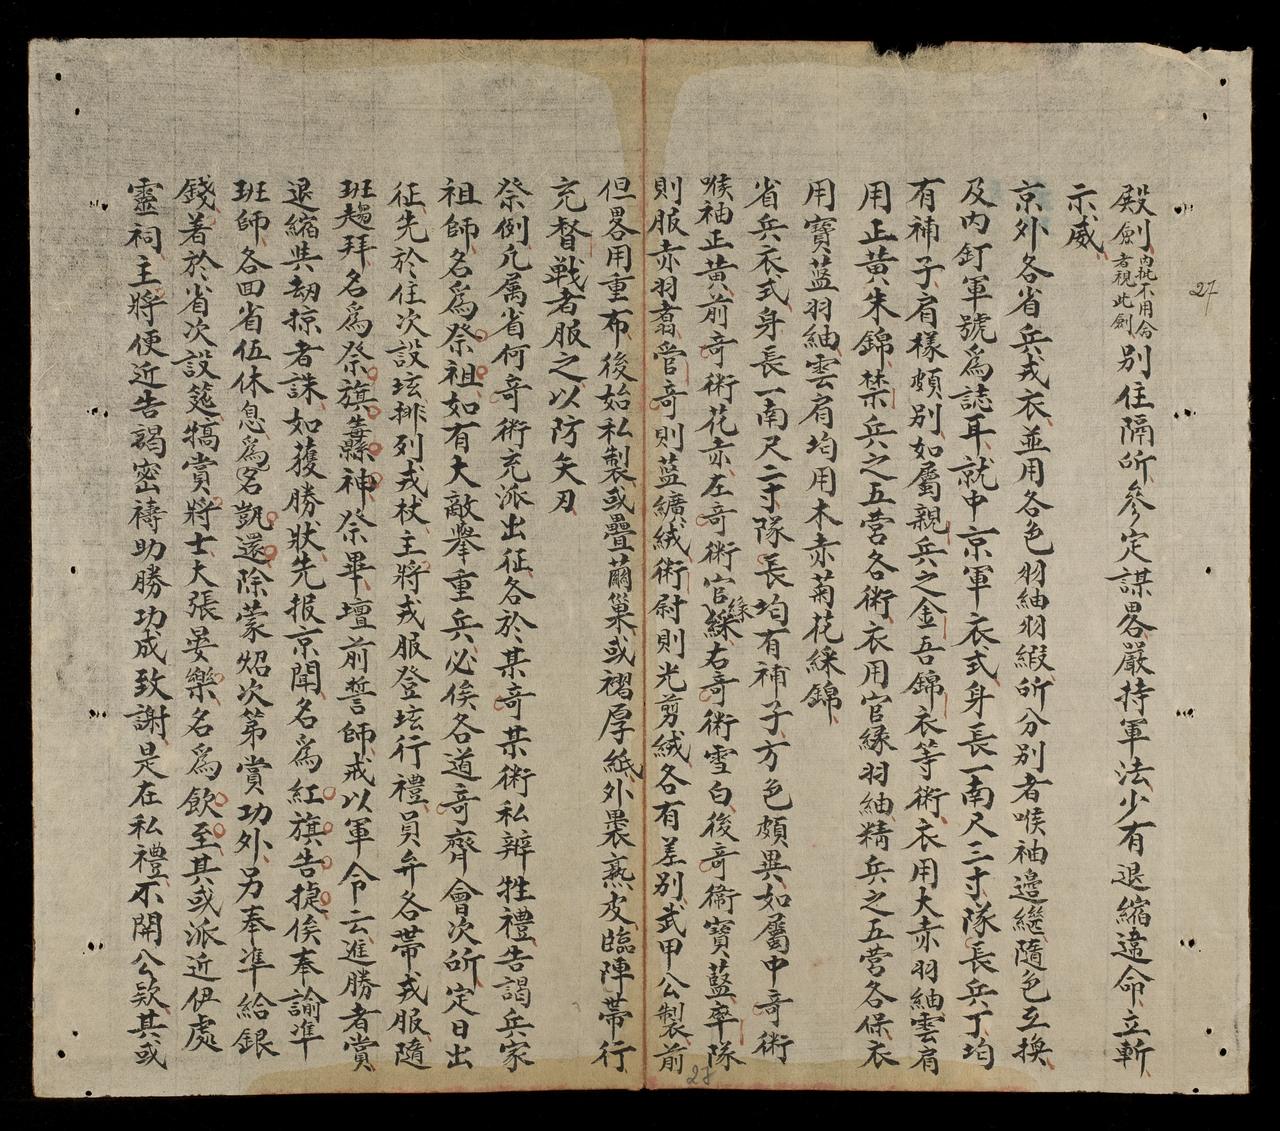 27
殿劍內批不用命者視此劍別住隔所參定謀畧嚴持軍法少有退縮違命立斬
示威
京外各省兵戎衣並用各色羽紬羽緞所分別者喉袖邊繼隨色互換
及內釘軍號爲誌耳就中京軍衣式身長一南尺三寸隊長兵丁均
有補子肩樣頗別如屬親兵之金吾錦衣等術衣用大赤羽紬雲肩
用正黄朱錦禁兵之五營各術衣用官緑羽紬精兵之五营各保衣
用寶蓝羽紬雲肩均用木赤菊花綵錦
省兵衣式身長一南尺二寸隊長均有補子方色頗異如屬中竒術
喉袖正黄前竒術花赤左竒術官綵緑右竒術雪白後竒衛寶藍率隊
則服赤羽翥管竒則蓝纊絨術尉則光剪絨各有差别武甲公製前
但畧用重布後始私製或疊繭巢或褶厚紙外褁熟皮臨陣帶行
充督戰者服之以防矢刃
祭例凣属省何竒術充派出征各於某竒某術私辧牲禮告謁兵家
祖師名爲祭祖如有大敵擧重兵必俟各道竒齊會次所定日出
征先於住次設𡊨排列戎杖主將戎服登𡊨行禮員弁各帶戎服隨
班趨拜名爲祭旗纛縣神祭畢壇前誓師戒以軍令云進勝者賞
退縮與刼掠者誅如獲勝狀先报京聞名爲紅旗告捷俟奉諭凖
班師各回省伍休息爲名凱還除蒙炤次第賞功外另奉凖給銀
錢着於省次設筵犒賞將士大張晏樂名爲飲至其或派近伊處
靈祠主將便近告謁密禱助勝功成致謝是在私禮不開公欵其或
28